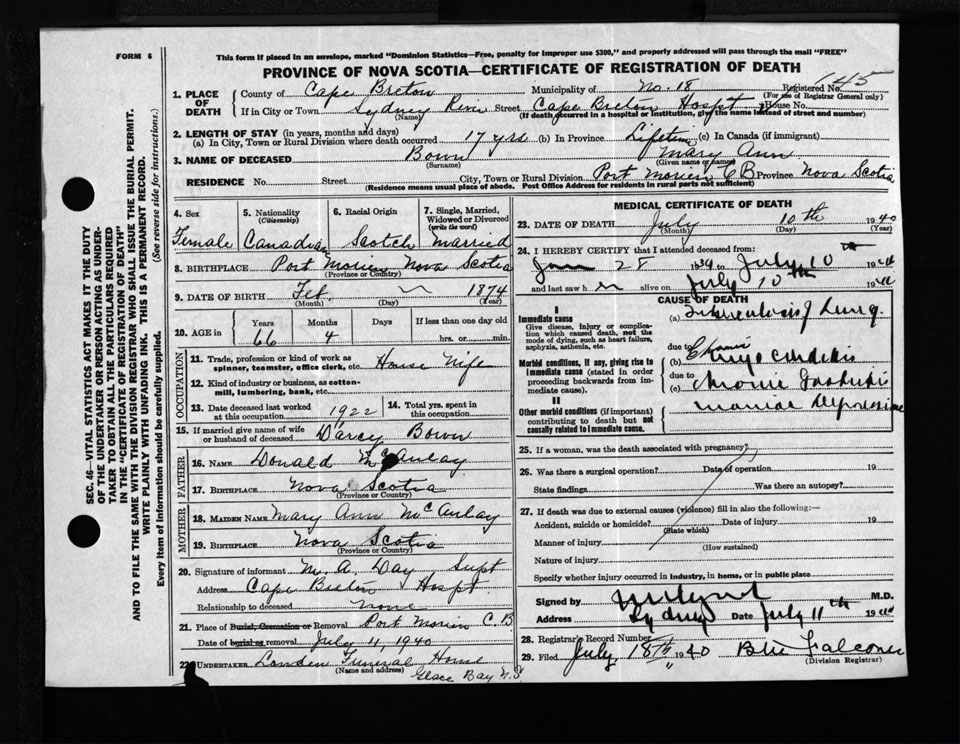 FORM 6
This form if placed in an envelope, marked "Dominion Statistics—Free, penalty for improper use $300," and properly addressed will pass through the mail "FREE"
PROVINCE OF NOVA SCOTIA—CERTIFICATE OF REGISTRATION OF DEATH
SEC. 46—VITAL STATISTICS ACT MAKES IT THE DUTY
OF THE UNDERTAKER OR PERSON ACTING AS UNDER-
TAKER TO OBTAIN ALL THE PARTICULARS REQUIRED
IN THE "CERTIFICATE OF REGISTRATION OF DEATH"
AND TO FILE THE SAME WITH THE DIVISION REGISTRAR WHO SHALL ISSUE THE BURIAL PERMIT.
WRITE PLAINLY WITH UNFADING INK. THIS IS A PERMANENT RECORD.
Every item of information should be carefully supplied. (See reverse side for instructions.)
1. PLACE OF DEATH County of Cape Breton Municipality of No. 18 Registered No. 145
(For use of Registrar General only)
If in City or Town Sydney River Street Cape Breton Hospt House No.
(Name) (If death occurred in a hospital or institution, give the name instead of street and number)
2. LENGTH OF STAY (in years, months and days)
(a) In City, Town or Rural Division where death occurred 17 yrs (b) In Province Lifetime (c) In Canada (if immigrant)
3. NAME OF DECEASED Bown Mary Ann
(Surname) (Given name or names)
RESIDENCE No. Street City, Town or Rural Division Port Morien C B Province Nova Scotia
(Residence means usual place of abode. Post Office Address for residents in rural parts not sufficient)
4. Sex 5. Nationality (Citizenship) 6. Racial Origin 7. Single, Married, Widowed or Divorced (write the word)
Female Canadian Scotch married
8. BIRTHPLACE Port Morien Nova Scotia
(Province or Country)
9. DATE OF BIRTH Feb. 1874
(Month) (Day) (Year)
10. AGE in Years Months Days If less than one day old
66 4 hrs. or min.
OCCUPATION
11. Trade, profession or kind of work as spinner, teamster, office clerk, etc. House Wife
12. Kind of industry or business, as cotton-mill, lumbering, bank, etc.
13. Date deceased last worked at this occupation 1922 14. Total yrs. spent in this occupation
15. If married give name of wife or husband of deceased Darcy Bown
FATHER
16. NAME Donald McAulay
17. BIRTHPLACE Nova Scotia
(Province or Country)
MOTHER
18. MAIDEN NAME Mary Ann McAulay
19. BIRTHPLACE Nova Scotia
(Province or Country)
20. Signature of informant M. A. Day Supt
Address Cape Breton Hospt.
Relationship to deceased none
21. Place of Burial, Cremation or Removal Port Morien C. B
Date of burial or removal July 11, 1940
22. UNDERTAKER Funeral Home
(Name and address) Glace Bay N.S
MEDICAL CERTIFICATE OF DEATH
23. DATE OF DEATH July 10th 1940
(Month) (Day) (Year)
24. I HEREBY CERTIFY that I attended deceased from:
Jan 28 1939 to July 10th 1940
and last saw her alive on July 10th 1940
CAUSE OF DEATH
I
Immediate cause
Give disease, injury or complication which caused death, not the mode of dying, such as heart failure, asphyxia, asthenia, etc.
(a) Tuberculosis of Lung
due to
Morbid conditions, if any, giving rise to immediate cause (stated in order proceeding backwards from immediate cause).
(b) Chronic myocarditis
due to
(c) Chronic Gastritis
II
Other morbid conditions (if important) contributing to death but not causally related to immediate cause.
Maniac Depressive
25. If a woman, was the death associated with pregnancy?
26. Was there a surgical operation? Date of operation 19
State findings Was there an autopsy?
27. If death was due to external causes (violence) fill in also the following:—
Accident, suicide or homicide? Date of injury 19
(State which)
Manner of injury
(How sustained)
Nature of injury
Specify whether injury occurred in industry, in home, or in public place
Signed by M.D.
Address Sydney Date July 11th 1940
28. Registrar's Record Number
29. Filed July 18th 1940 Falconer
(Division Registrar)